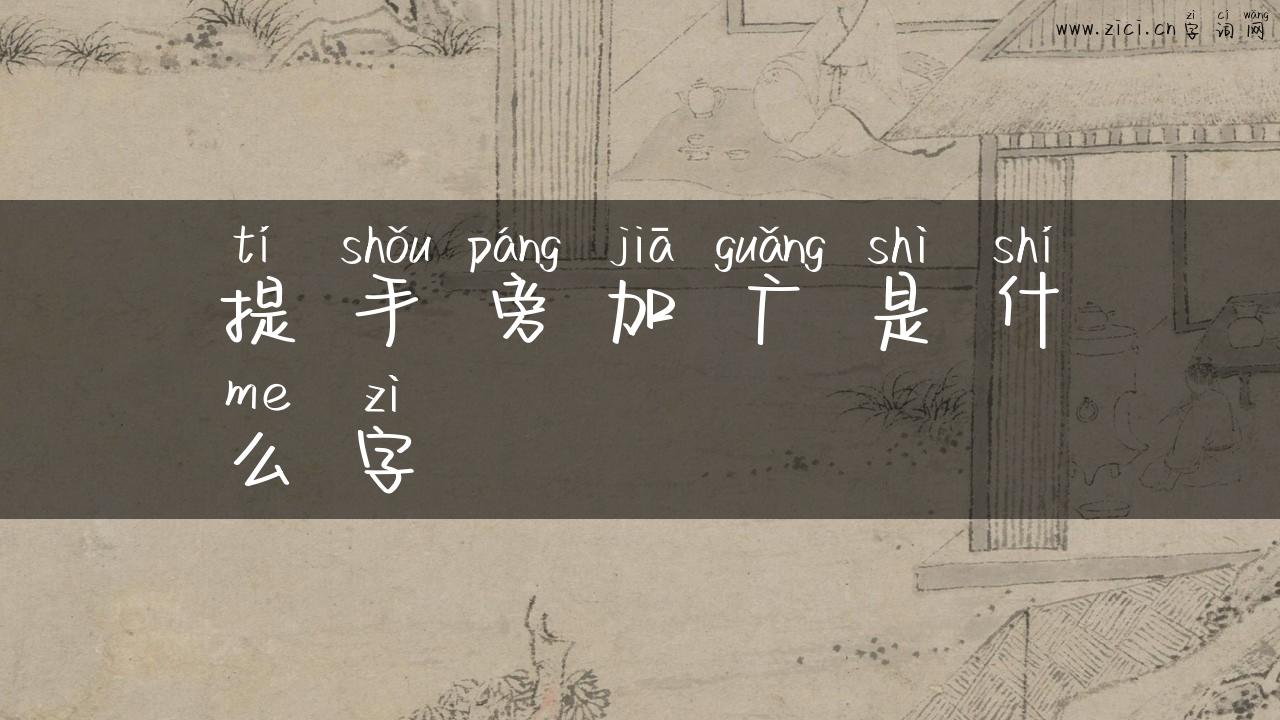 zì cí wǎng
www.zici.cn 字 词 网
tí shǒu páng jiā guǎng shì shí
提 手 旁 加 广 是 什
me zì
么 字